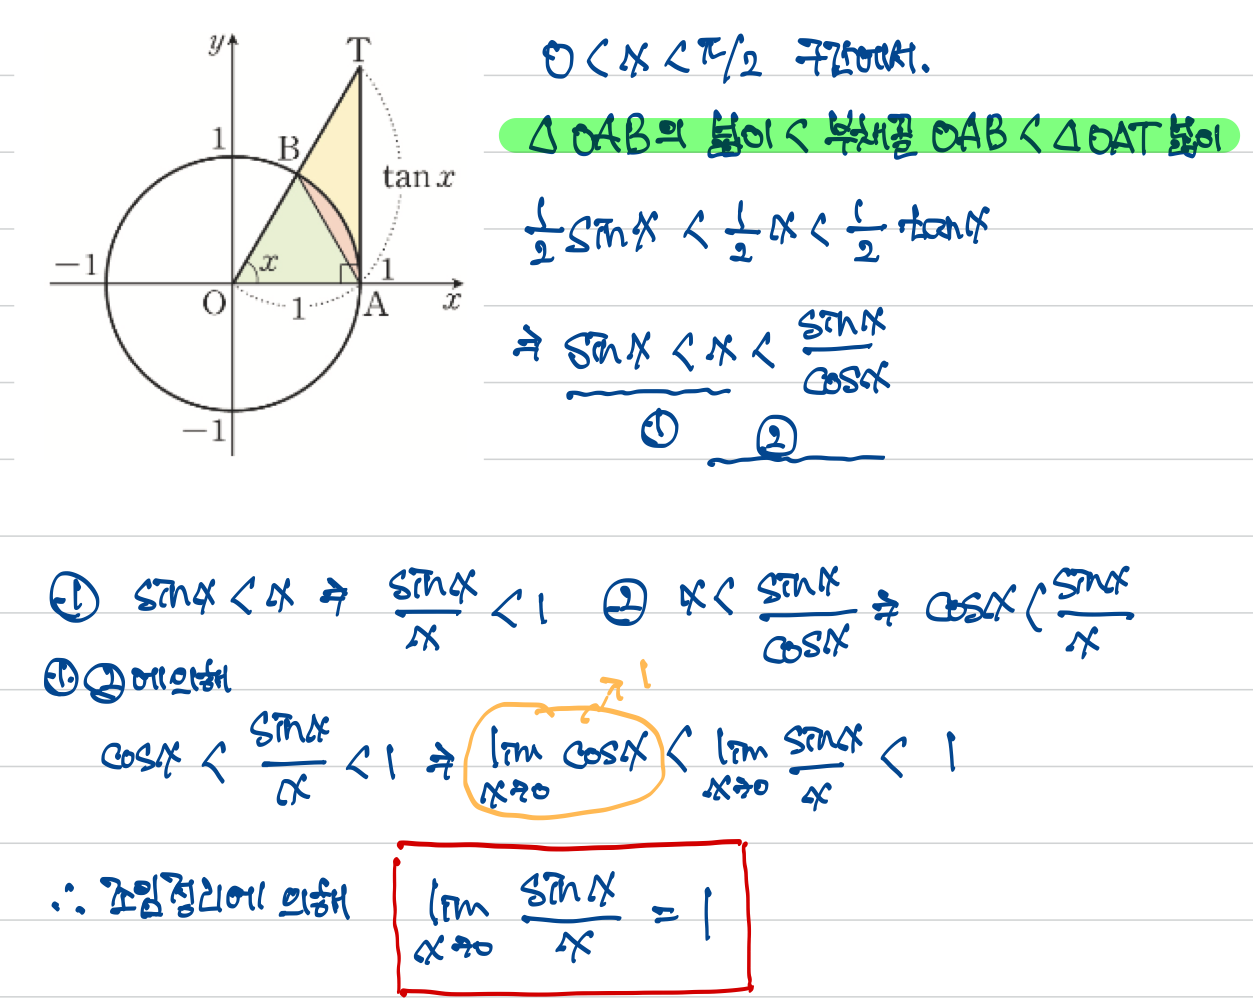 y
T
1
B
tan x
-1
x
1
O
1
A
x
-1
0 < x < π/2 구간에서.
△OAB의 넓이 < 부채꼴 OAB < △OAT 넓이
1/2 sinx < 1/2 x < 1/2 tanx
⇒ sinx < x < sinx/cosx
① ②
① sinx < x ⇒ sinx/x < 1 ② x < sinx/cosx ⇒ cosx < sinx/x
①②에 의해
→ 1
cosx < sinx/x < 1 ⇒ lim x→0 cosx < lim x→0 sinx/x < 1
∴ 조임정리에 의해 lim x→0 sinx/x = 1